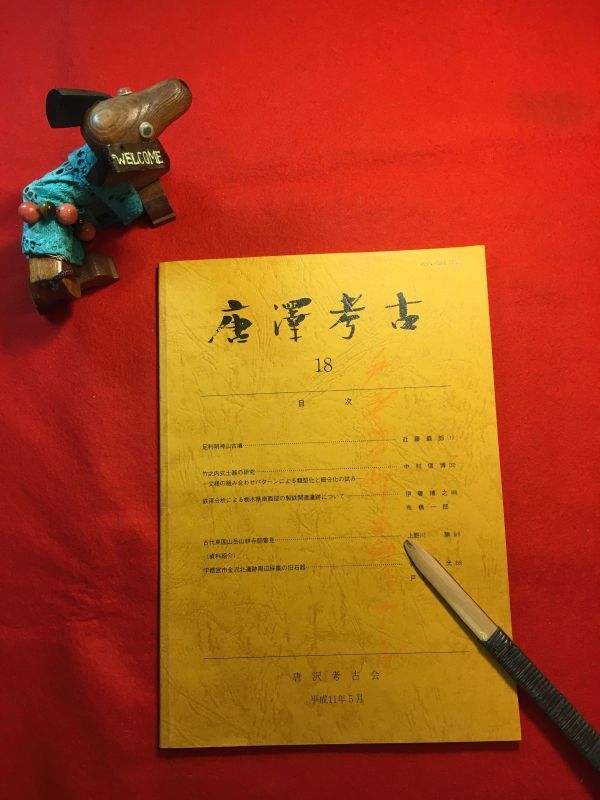 WELCOME
唐澤考古
18
目 次
足利明神山古墳 近藤義郎 (1)
竹之内式土器の研究 中村信博
―文様の組み合わせパターンによる類型化と細分化の試み―
鉄滓分析による栃木県南西部の製鉄関連遺跡について 伊藤博之
高橋一郎
古代東国山岳山林寺院瞥見 上野川 勝
(資料紹介)
宇都宮市金沢北遺跡周辺採集の旧石器
戸
唐沢考古会
平成11年5月